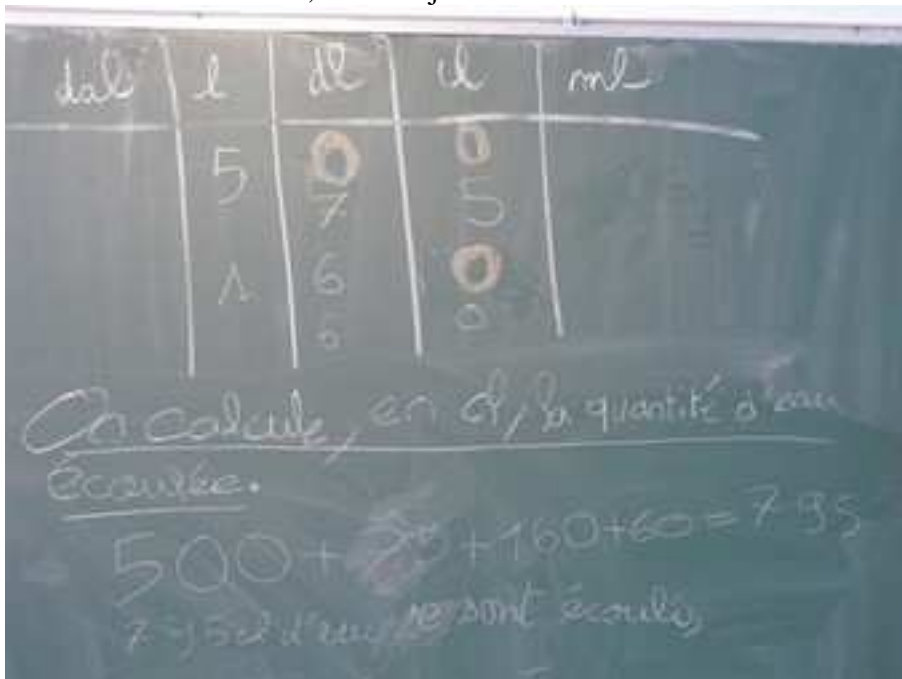 dal l dl cl ml
5 0 0
7 5
1 6 0
On calcule, en cl, la quantité d'eau
écoulée.
500 + + 160 + 60 = 795
d'eau se sont écoulés